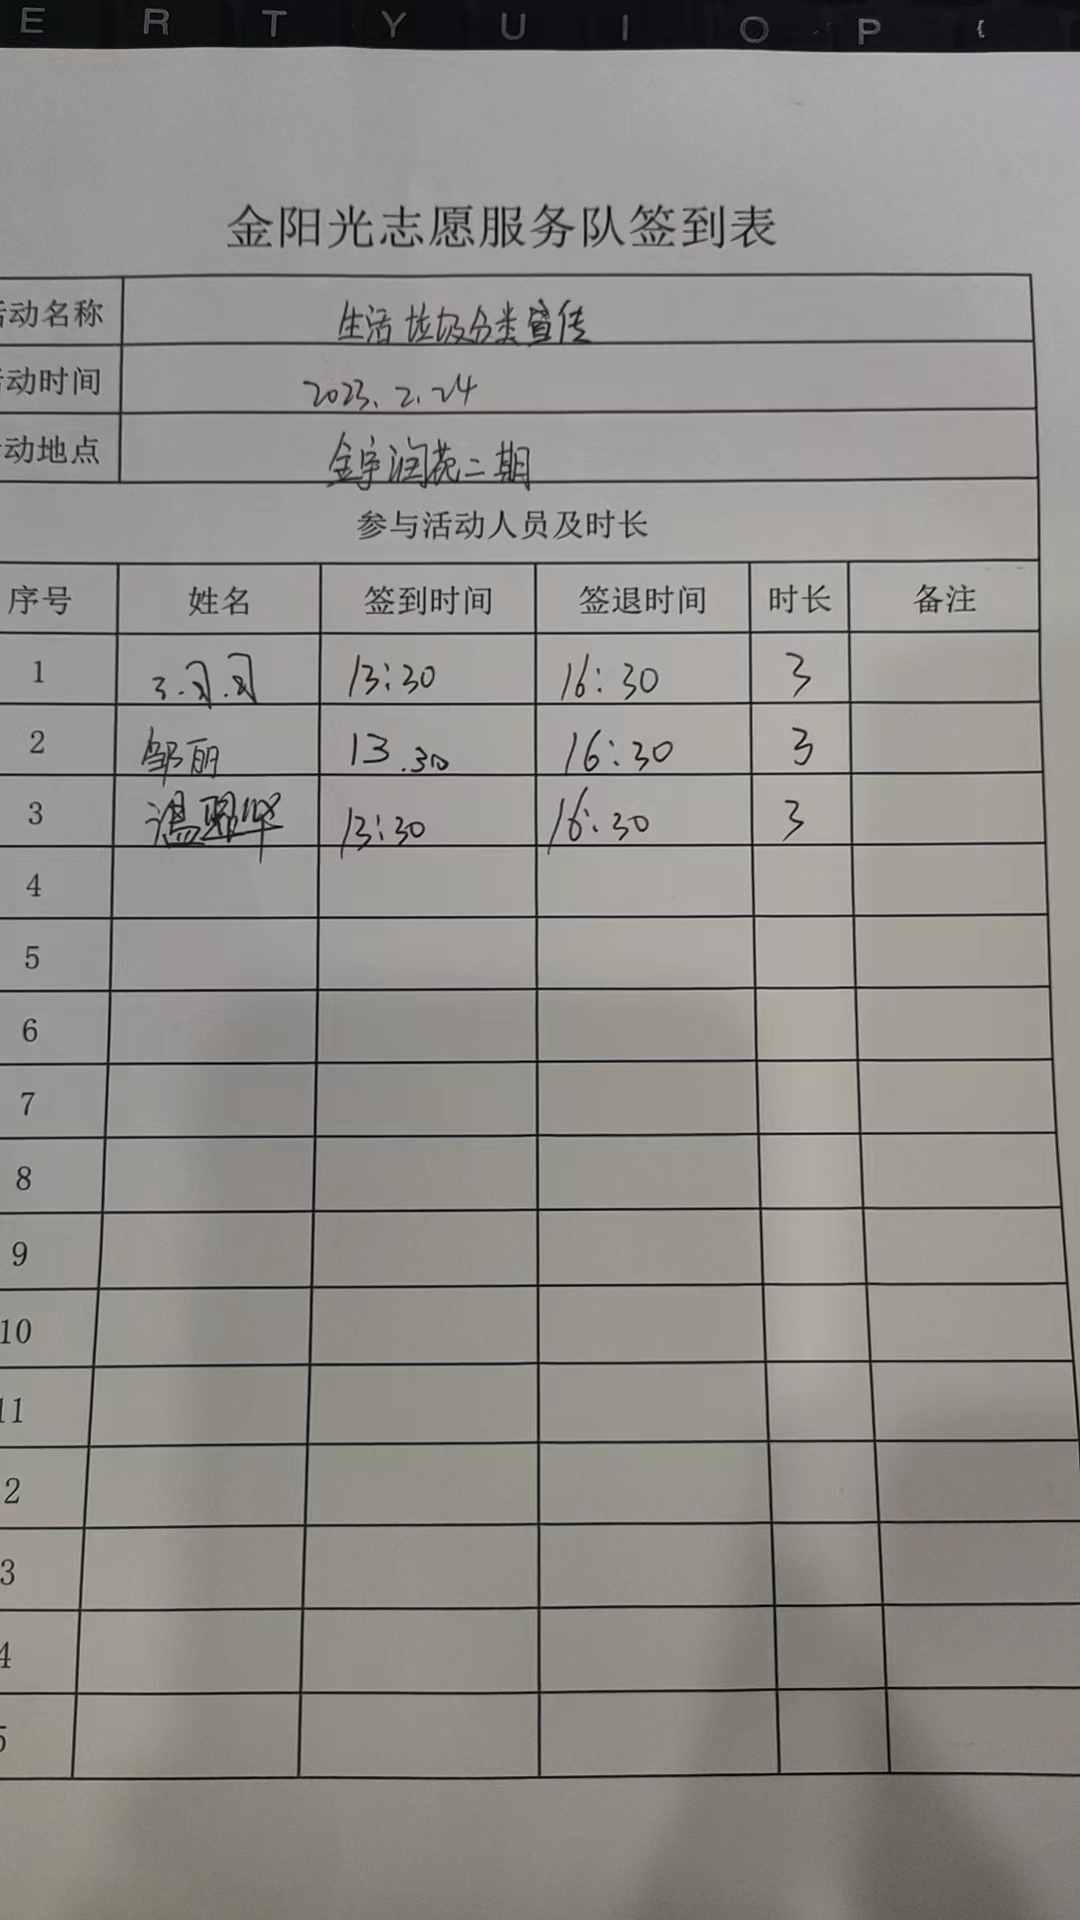 E R T Y U I O P {
金阳光志愿服务队签到表
活动名称 生活垃圾分类宣传
活动时间 2023.2.24
活动地点 金宇润苑二期
参与活动人员及时长
序号 姓名 签到时间 签退时间 时长 备注
1 13:30 16:30 3
2 邹丽 13.30 16:30 3
3 13:30 16:30 3
4
5
6
7
8
9
10
11
2
3
4
5